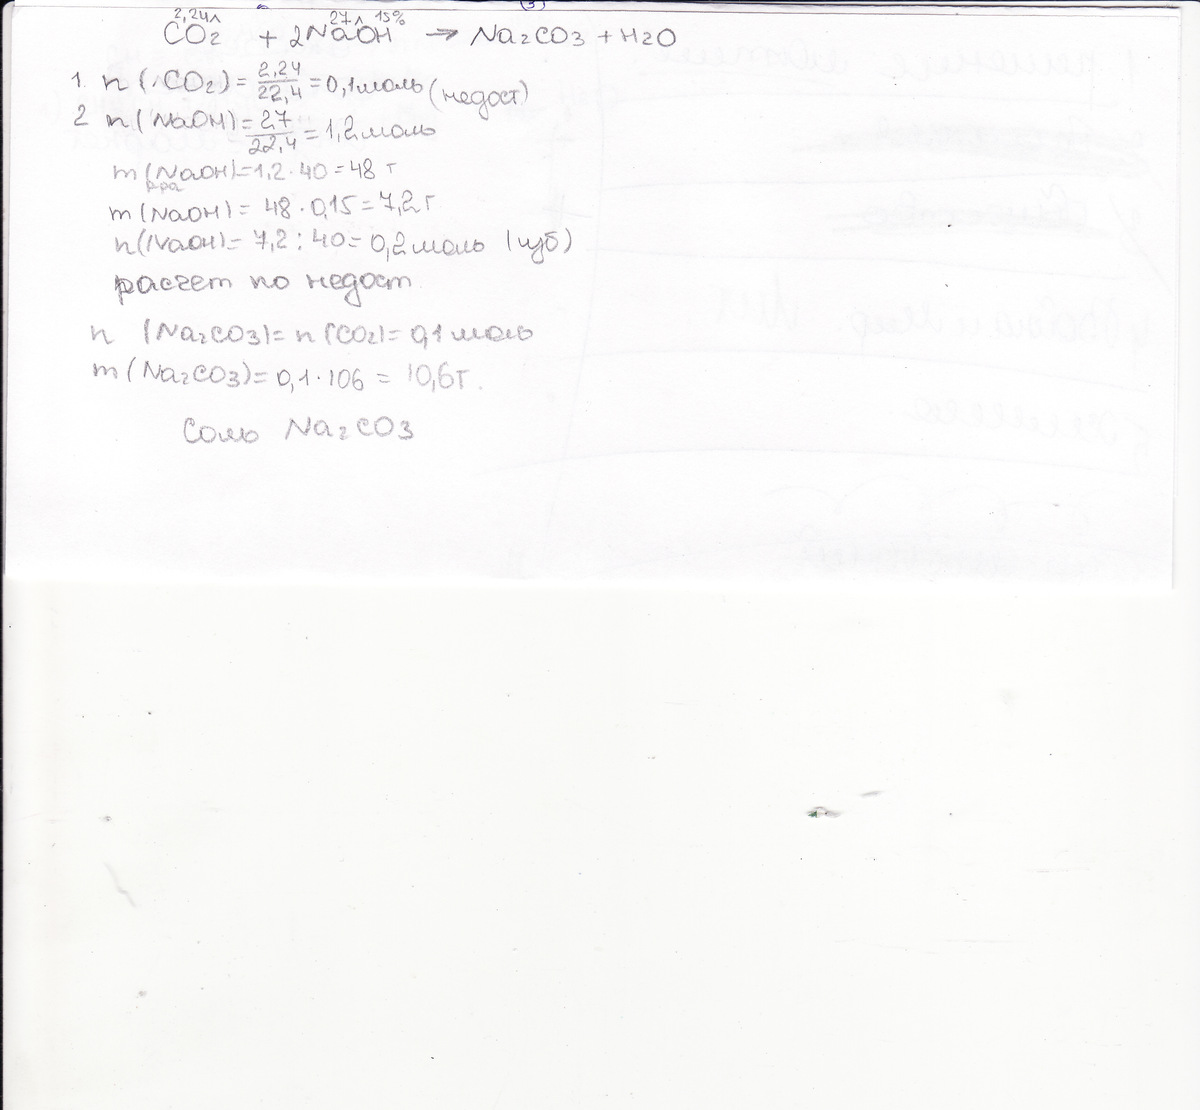 (3)
2,24л 27л 15%
CO2 + 2NaOH → Na2CO3 + H2O
1. n (CO2) = 2,24/22,4 = 0,1 моль (недост)
2 n (NaOH) = 27/22,4 = 1,2 моль
m (NaOH) = 1,2 · 40 = 48 г
р-ра
m (NaOH) = 48 · 0,15 = 7,2 г
n (NaOH) = 7,2 : 40 = 0,2 моль (изб)
расчет по недост.
n (Na2CO3) = n (CO2) = 0,1 моль
m (Na2CO3) = 0,1 · 106 = 10,6 г.
Соль Na2CO3